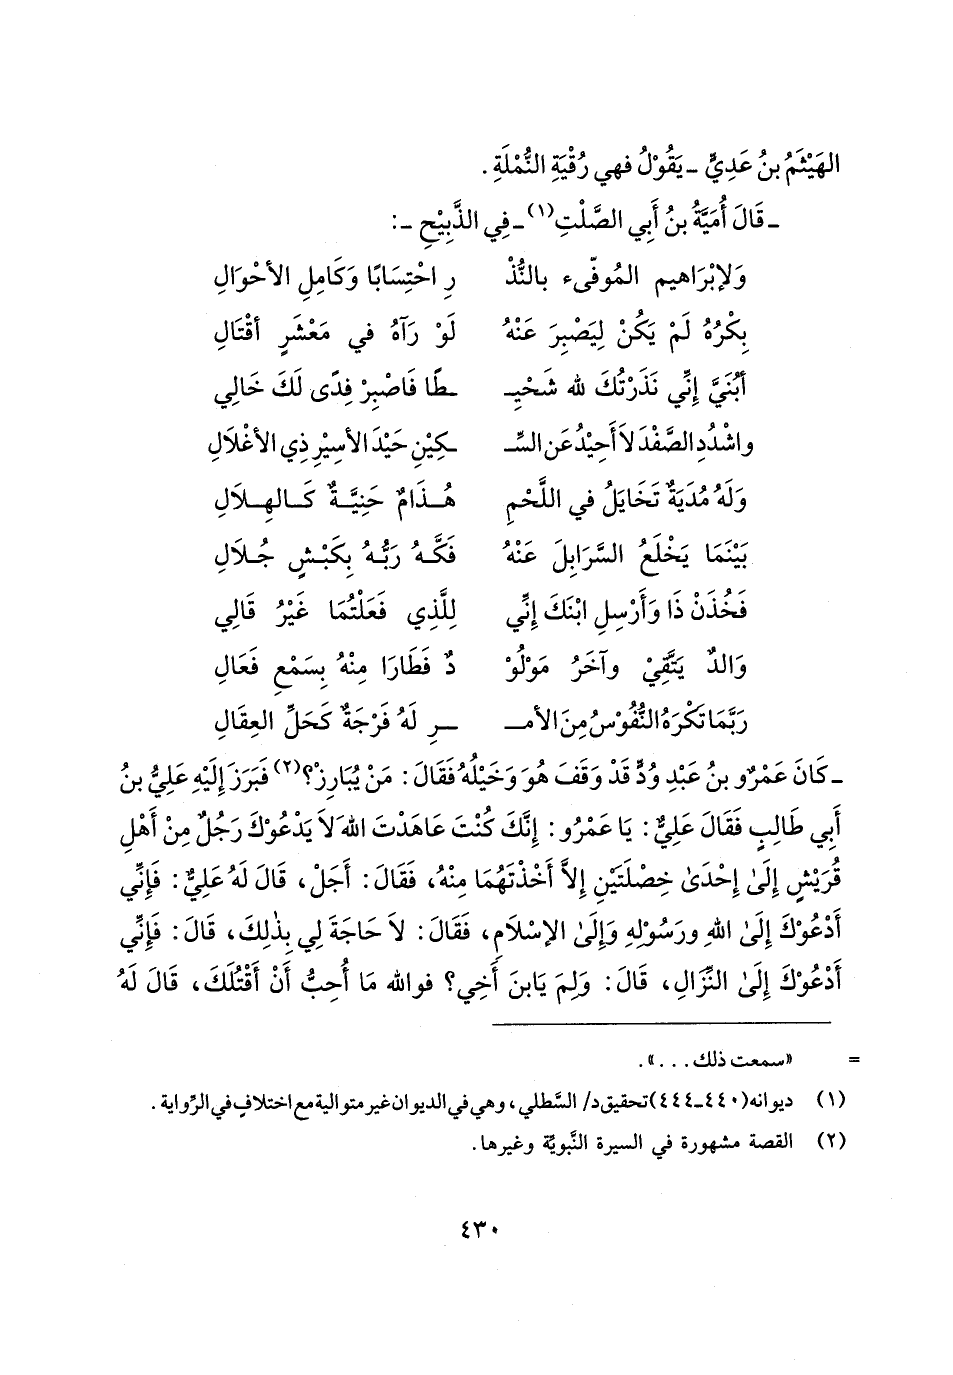 الهَيْثَمُ بنُ عَدِيٍّ ـ يَقُوْلُ فهي رُقْيَةِ النُّمْلَةِ .
ـ قَالَ أُمَيَّةُ بنُ أَبِي الصَّلْتِ(١) ـ فِي الذَّبِيْحِ ـ :
وَلإبْرَاهيم المُوفّىء بالنُّذْ رِ احْتِسَابًا وَكَامِلِ الأحْوَالِ
بِكْرُهُ لَمْ يَكُنْ لِيَصْبِرَ عَنْهُ لَوْ رَآهُ في مَعْشَرٍ أقْتَالِ
أبُنَيَّ إِنِّي نَذَرْتُكَ لله شَحْيِـ ـطًا فَاصْبِرْ فِدًى لَكَ خَالِي
واشْدُدِ الصَّفْدَ لاَ أَحِيْدُ عَن السِّـ ـكِيْنِ حَيْدَ الأسِيْرِ ذِي الأغْلاَلِ
وَلَهُ مُدْيَةٌ تَخَايَلُ في اللَّحْمِ هُـذَامٌ حَنِيَّـةٌ كَـالهِـلاَلِ
بَيْنَمَا يَخْلَعُ السَّرَابِلَ عَنْهُ فَكَّـهُ رَبُّـهُ بِكَبْـشٍ جُـلاَلِ
فَخُذَنْ ذَا وَأَرْسِلِ ابْنَكَ إِنِّي لِلَّذِي فَعَلْتُمَا غَيْرُ قَالِي
وَالدٌ يَتَّقِيْ وآخَرُ مَوْلُوْ دٌ فَطَارَا مِنْهُ بِسَمْعٍ فَعَالِ
رَبَّمَا تَكْرَهُ النُّفُوْسُ مِنَ الأمـ ـرِ لَهُ فَرْجَةٌ كَحَلِّ العِقَالِ
ـ كَانَ عَمْرُو بنُ عَبْدِ وُدٍّ قَدْ وَقَفَ هُوَ وَخَيْلُهُ فَقَالَ : مَنْ يُبَارِزُ؟(٢) فَبَرَزَ إِلَيْهِ عَلِيُّ بنُ
أَبِي طَالِبٍ فَقَالَ عَلِيٌّ : يا عَمْرُو : إِنَّكَ كُنْتَ عَاهَدْتَ اللهَ لاَ يَدْعُوْكَ رَجُلٌ مِنْ أَهْلِ
قُرَيْشٍ إِلَىٰ إِحْدَىٰ خِصْلَتَيْنِ إِلاَّ أَخَذْتَهُمَا مِنْهُ، فَقَالَ : أَجَلْ، قَالَ لَهُ عَلِيٌّ : فَإِنِّي
أَدْعُوْكَ إِلَىٰ اللهِ ورَسُوْلِهِ وَإِلَىٰ الإسْلاَمِ، فَقَالَ : لاَ حَاجَةَ لِي بِذٰلِكَ، قَالَ : فَإِنِّي
أَدْعُوْكَ إِلَىٰ النِّزَالِ، قَالَ : وَلِمَ يَابنَ أَخِي؟ فوالله مَا أُحِبُّ أَنْ أَقْتُلَكَ، قَالَ لَهُ
= «سمعت ذلك . . .» .
(١) ديوانه (٤٤٠ـ٤٤٤) تحقيق د/ السَّطلي، وهي في الديوان غير متوالية مع اختلافٍ في الرِّواية .
(٢) القصة مشهورة في السيرة النَّبويَّة وغيرها .
٤٣٠